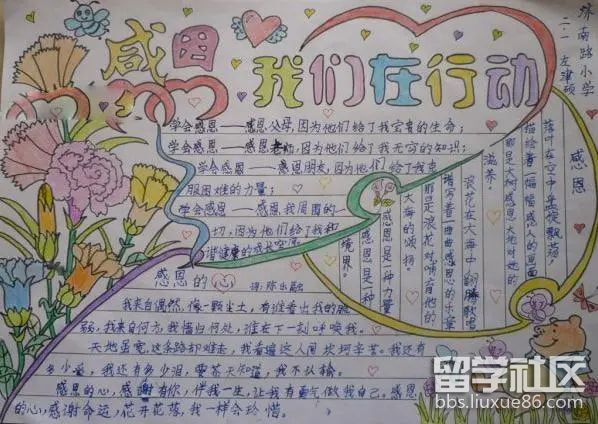 感恩
我们在行动
济南路小学
二.1 左津硕
学会感恩——感恩父母,因为他们给了我宝贵的生命;
学会感恩——感恩老师,因为他们给了我无穷的知识;
学会感恩——感恩朋友,因为他们给了我克
服困难的力量;
学会感恩——感恩我周围的一
切,因为他们给了我和
谐健康的成长空间
感恩
落叶在空中盘旋飘荡,
描绘着一幅幅感人的画面
那是大树感恩大地对她的
滋养。
浪花在大海中翻腾歌唱
谱写着一曲曲感恩的乐章
那是浪花对哺育他的
大海的颂扬。
感恩是一种力量
感恩是一种
境界。
感恩的心
词:陈乐融
我来自偶然,像一颗尘土,有谁看出我的脆
弱,我来自何方,我情归何处,谁在下一刻呼唤我。
天地虽宽,这条路却难走,我看遍这人间坎坷辛苦。我还有
多少爱,我还有多少泪,要苍天知道,我不认输。
感恩的心,感谢有你,伴我一生,让我有勇气做我自己。感恩
的心,感谢命运,花开花落,我一样会珍惜。
留学社区
bbs.liuxue86.com